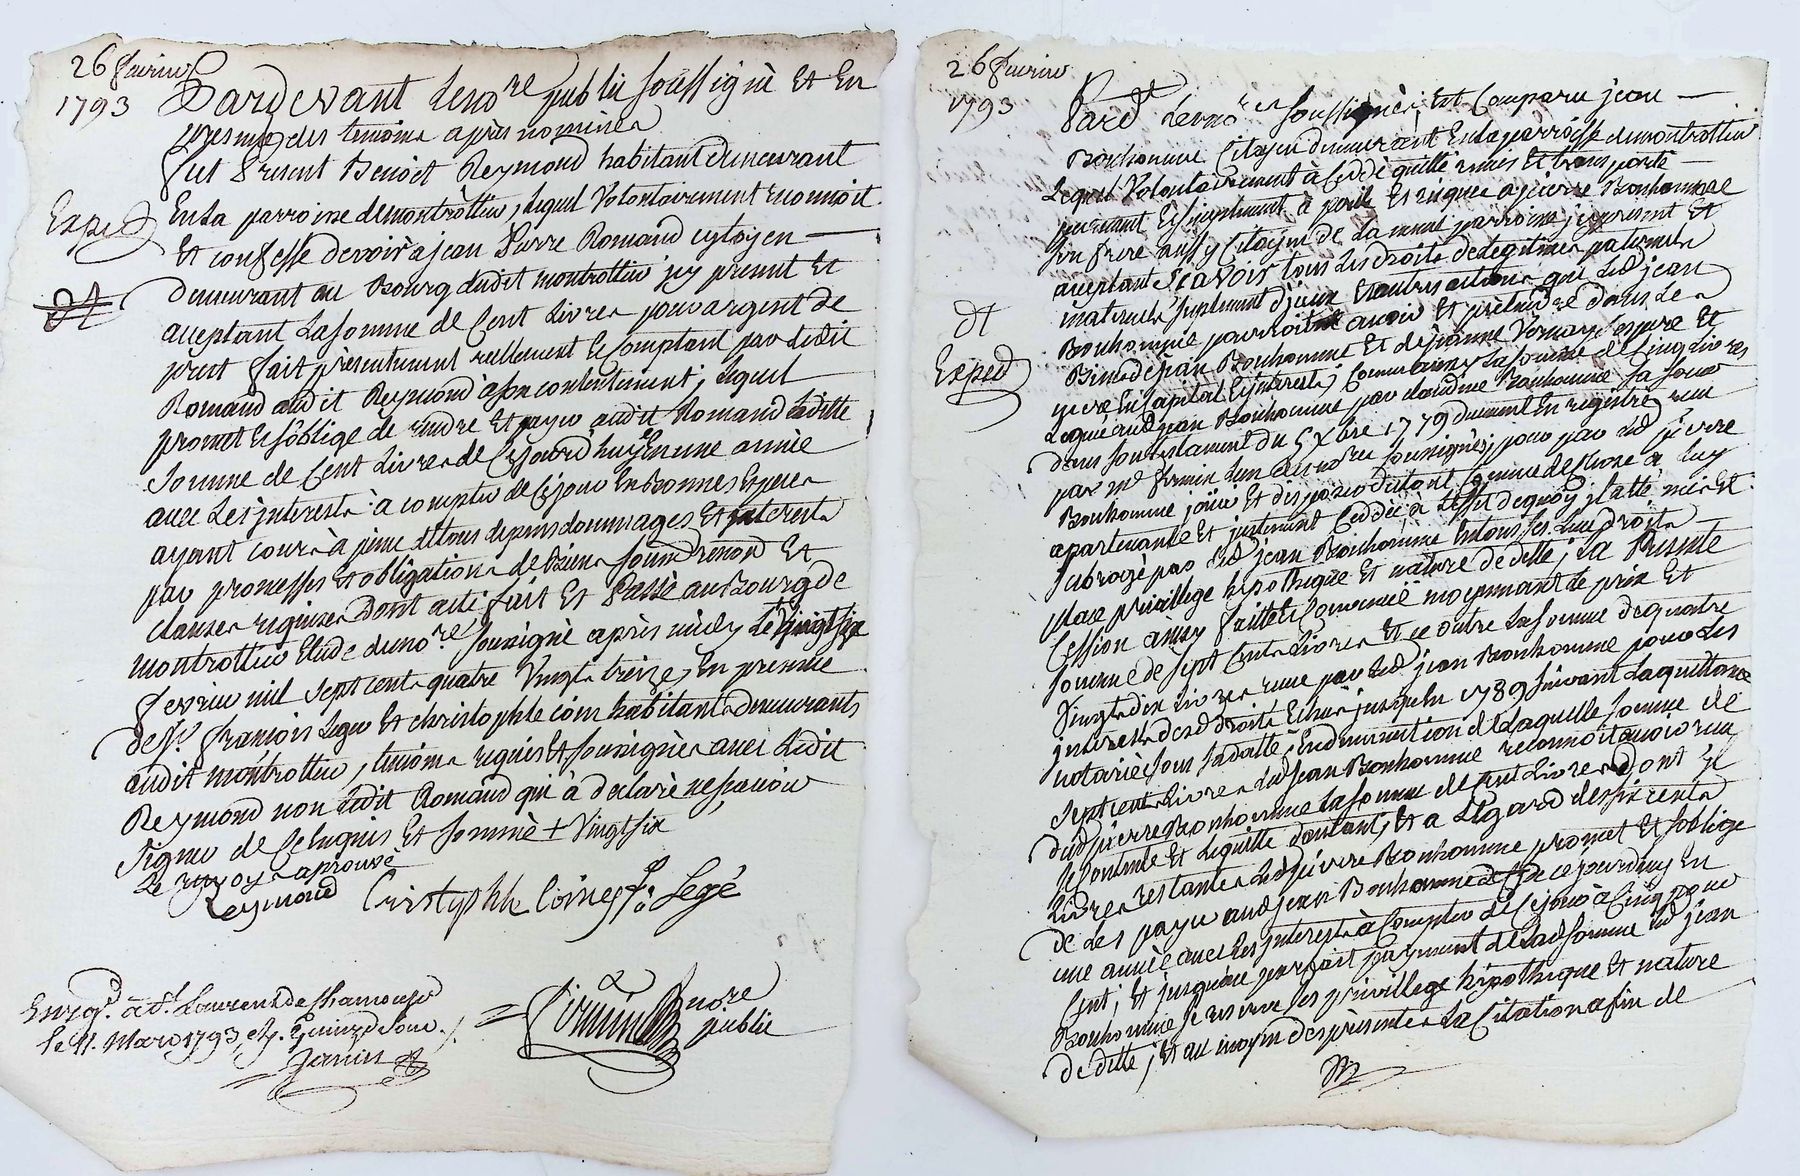 26 fevrier
1793
Expéd
dt
Pardevant le no.re public soussigné Et En
presence des temoins après nommés
fut Present Benoit Reymond habitant demeurant
En la parroisse de montrottier, lequel Volontairement reconnoit
Et confesse devoir à jean Pierre Romand cytoyen
demeurant au Bourg dudit montrottier icy present Et
acceptant La somme de Cent Livres pour argent de
prest fait présentement reellement Et Comptant par ledit
Romand audit Reymond à son contentement, lequel
promet Et s'oblige de rendre Et payer audit Romand laditte
somme de Cent Livres de Cejourd'huy En une année
avec Les jnterests à compter de Cejour En Bonnes Especes
ayant cours à peine de tous depens dommages Et jnterests
par promesses Et obligation de Biens soumis renond Et
clauses requises Dont acte fait Et Passé au Bourg de
montrottier Etude du no.re soussigné après midy Le vingt six
fevrier mil sept cents quatre Vingts treize, En presence
de Sr. françois Legé Et christophle coin habitants demeurants
audit montrottier, temoins requis Et soussignés avec Ledit
Reymond non Ledit Romand qui à declaré ne sçavoir
signer de Ce Enquis Et sommé + Vingt six
Le renvoy aprouvé
Reymond Cristophle Coine f.s Legé
Enreg.é à St. Laurent de Chamousset
le 11. Mars 1793,
Janin
no.re
public
26 fevrier
1793
dt
Expéd
Pard.t Les no.res soussignés, Est Comparu jean
Bonhomme Citoyen demeurant En la parroisse de montrottier
Lequel Volontairement à Cedé quitté remis Et transporté
purement Et simplement à perils Et risques à pierre Bonhomme
son frere aussy Citoyen de La même parroisse jcy present Et
acceptant Sçavoir tous Les Droits de Legitime paternels
maternels suplement d'jceux Et autres actions que Led. jean
Bonhomme pourroit avoir Et prétendre dans Les
Biens de jean Bonhomme Et de jeanne Vernay ses pere Et
mere En Capital Et jnterests, Comme aussy La somme de Cinq Livres
Leguée aud. jean Bonhomme par claudine Bonhomme sa soeur
dans son testament du 5 xbre 1779 duement En registré reçu
par m.e firmin L'un des no.res soussignés, pour par Led. pierre
Bonhomme joüir Et disposer du tout Comme de Chose à Luy
apartenante Et justement Cedée, à L'effet de quoy jl à été mis Et
subrogé par Led. jean Bonhomme En tous ses Lieu Droits
place privillege hipotheque Et nature de dette, La Presente
Cession ainsy faitte Et Convenüe moyennant Le prix Et
somme de sept Cents Livres Et ce outre La somme de quatre
Vingt dix Livres reçue par Led. jean Bonhomme pour Les
jnterests desd. droits Echus jusqu'en 1789 suivant La quittance
notariée sous sa datte, En diminution de Laquelle somme de
sept cents Livres Led. jean Bonhomme reconnoit avoir reçu
dud. pierre Bonhomme La somme de Cent Livres Dont jl
se Contente Et Le quitte d'autant, Et a L'Egard des six cents
Livres restantes Led. pierre Bonhomme promet Et s'oblige
de Les payer aud. jean Bonhomme de ce jourd'huy En
une année avec Les jnterests à Compter de Cejour à Cinq pour
Cent, Et jusqu'au parfait payement de Lad. somme Led. jean
Bonhomme se reserve ses privillege hipotheque Et nature
de dette, Et au moyen des presentes La Citation afin de